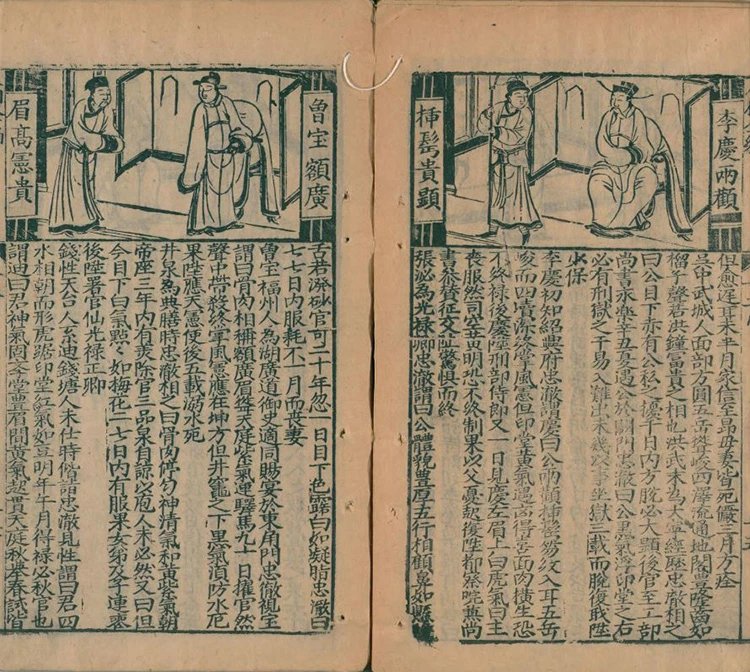 李慶兩顴
插鬂貴顯
但愈遲耳未半月家信至昂母妻皆死僅三月方痊
吳中武城人面部方圓五岳聳峻四瀆流通地閣豐隆齒如
榴子聲若洪鐘富貴之相也洪武末為大寧經歷忠澈相之
曰公目下亦有公私之擾千日內方脫必大顯後官至工部
尚書永樂辛丑身遇公於闕門忠澈曰公黑氣浮印堂之右
必有刑獄之干易入難出未幾以事坐獄三載而脫復職陞
少保
李慶初知紹興府忠澈謂慶曰公兩顴插鬂笏紋入耳五岳
而四瀆深終掌風憲但印堂黃氣遇高得官面肉橫生恐
不終祿後慶陞刑部侍郎又一日見慶左眉上白虎氣曰主
喪服然司空並明恐不終制果以父憂起復陞都察院兵尚
書參贊征交趾驚惧而終
張泌為光祿卿忠澈謂曰公體貌豊厚五行相顧鼻如懸
魯宝額廣
眉高憲貴
舌若潑砂官可二十年忽一日目下色露白如凝脂忠澈曰
七七日內服耗不一月而喪妻
曾宝福州人為湖廣道御史適同賜宴於東角門忠澈視宝
謂曰骨肉相稱額廣眉聳天庭紫氣連驛馬九十日擢官然
聲中帶殺終掌風憲應在坤方但井竈之下黑氣須防水厄
果陞應天憲使後五載溺水死
井泉為典膳時忠澈相之曰骨肉停匀神清氣和黃紫氣朝
帝座三年內有除官三品泉有諒以庖人未必然又曰但
今目下白氣點々如梅花一七日內有服果女弟及子連喪
後陞署官仙光祿正卿
錢性天台人系迪錢塘人未仕時偕謁忠澈見性謂曰君四
水相朝而形虎踞印堂紅氣如豆明年午月得祿必秋官也
謂迪曰君神氣堂豊眉間黃氣起貫天庭秋春試皆